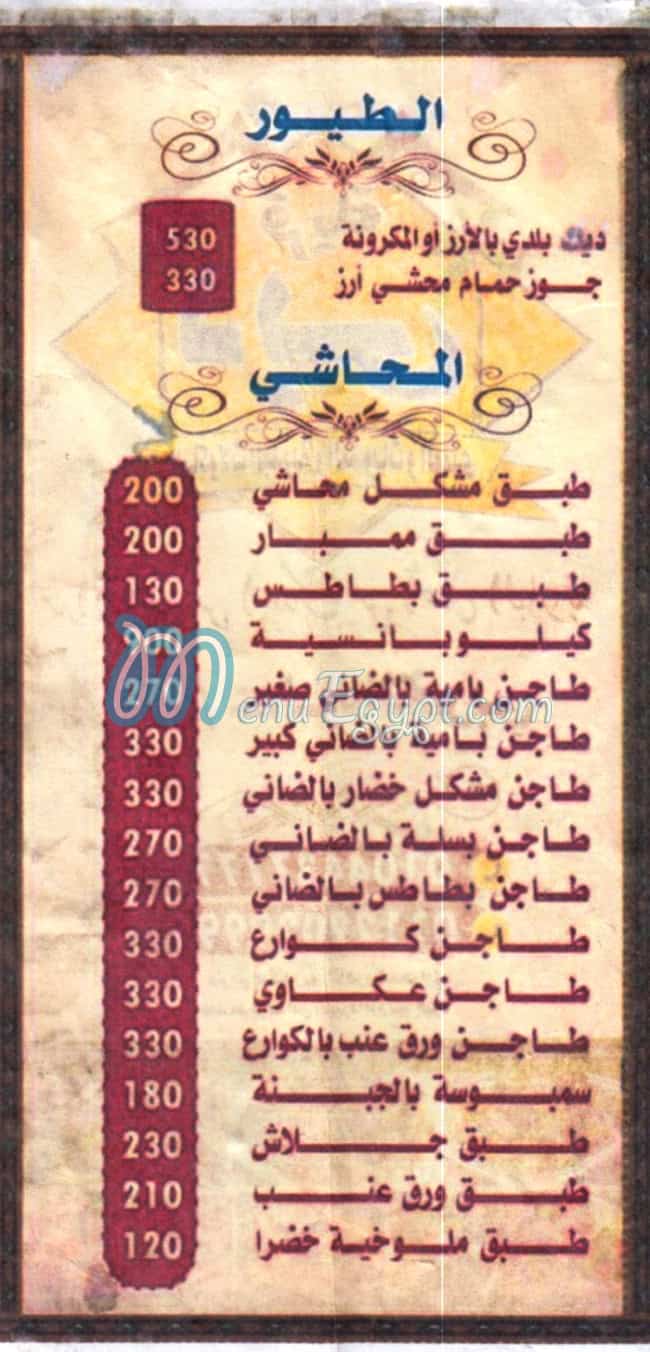 الطيور
ديك بلدي بالأرز أو المكرونة 530
جوز حمام محشي أرز 330
المحاشي
طبق مشكل محاشي 200
طبق ممبار 200
طبق بطاطس 130
كيلو بانسية 900
طاجن بامية بالضاني صغير 270
MenuEgypt.com
طاجن بامية بالضاني كبير 330
طاجن مشكل خضار بالضاني 330
طاجن بسلة بالضاني 270
طاجن بطاطس بالضاني 270
طاجن كوارع 330
طاجن عكاوي 330
طاجن ورق عنب بالكوارع 330
سمبوسة بالجبنة 180
طبق جلاش 230
طبق ورق عنب 210
طبق ملوخية خضرا 120